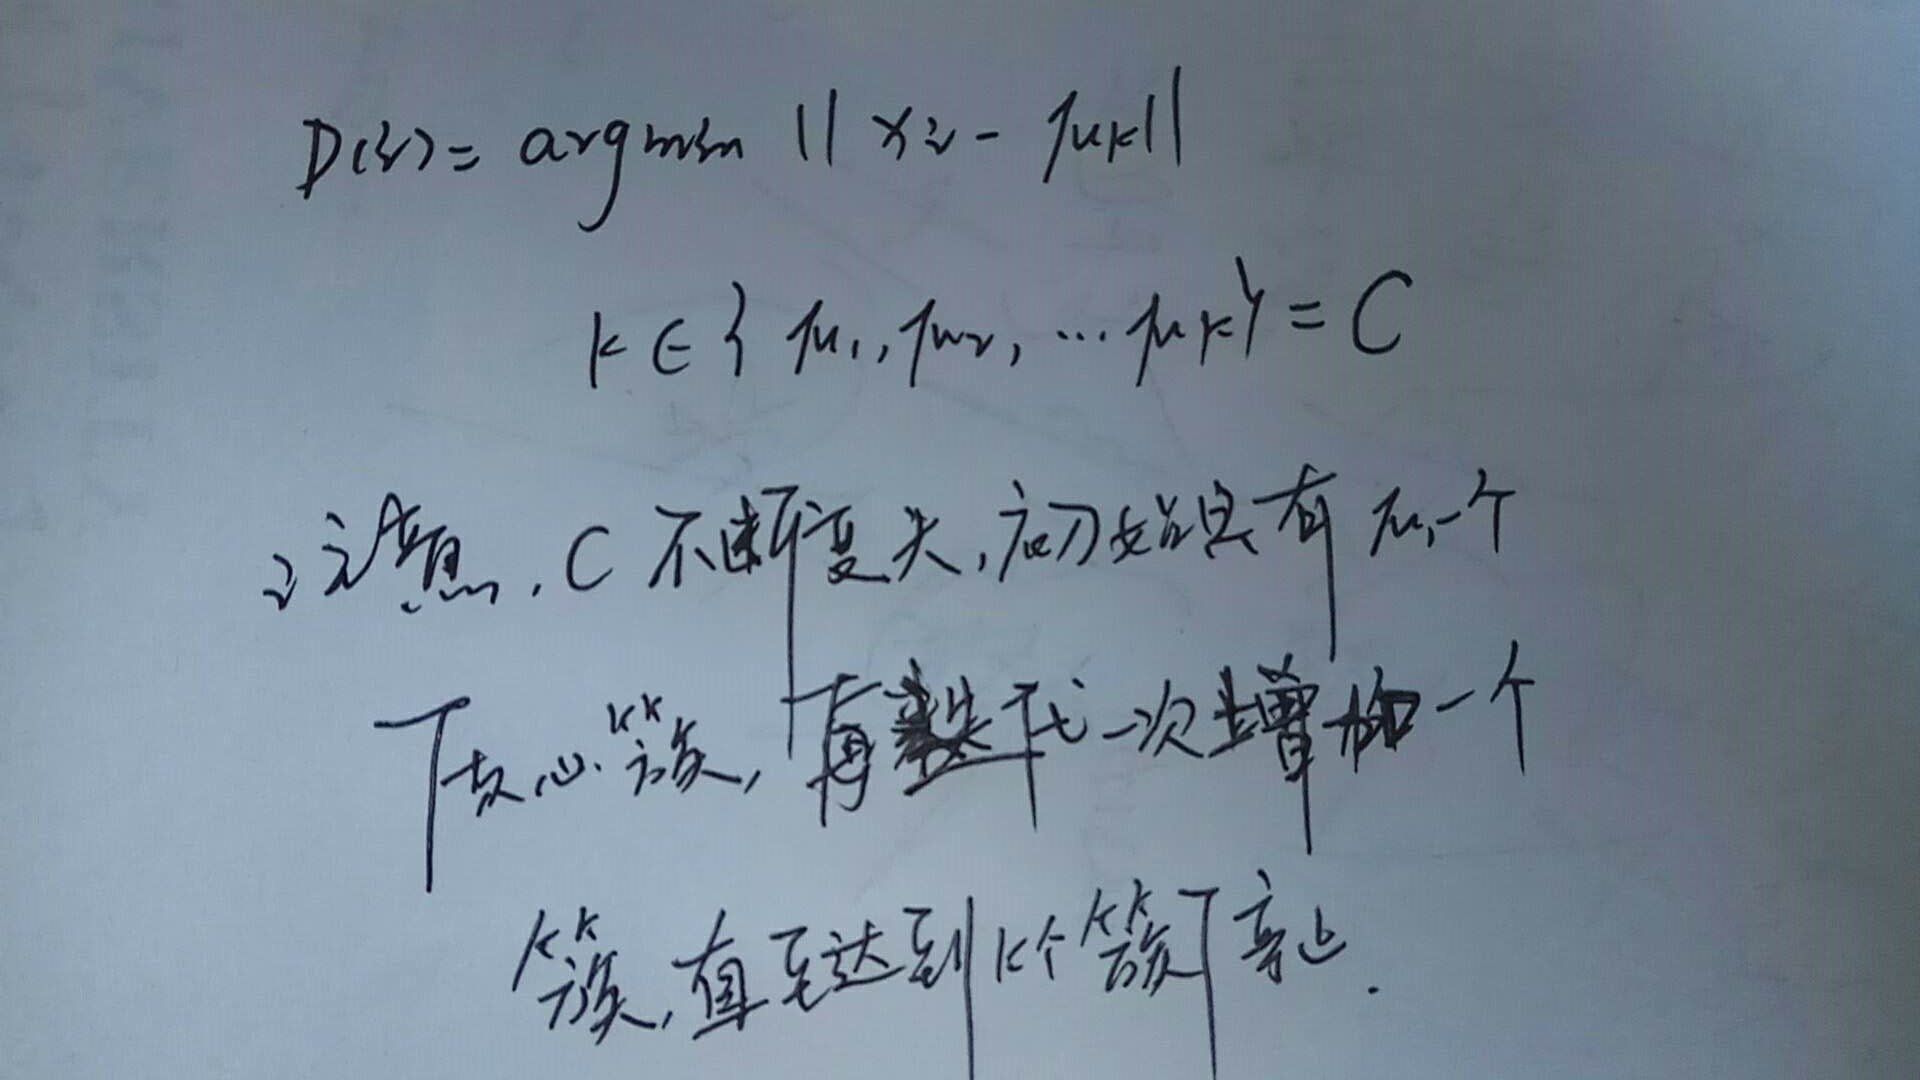 D(i) = argmin || xi - μk ||
k ∈ { μ1, μ2, … μk } = C
注意, C 不断变大, 初始只有 μ1 一个
核心簇, 再迭代一次增加一个
簇, 直至达到 k个簇